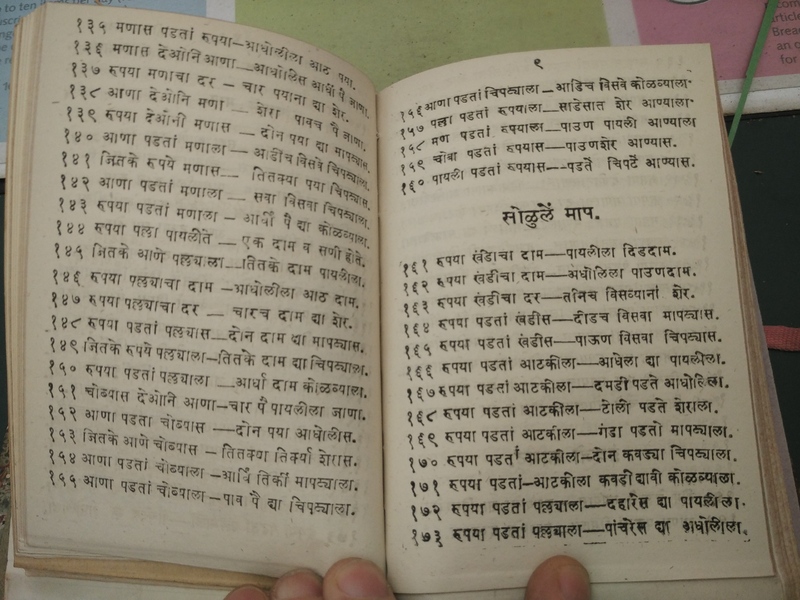 १३५ मणास पडतां रुपया—आधोलीला आठ पया.
१३६ मणास देओनि आणा—आधोलीस आर्धा पै जाणा.
१३७ रुपया मणाचा दर — चार पयाना द्या शेर.
१३८ आणा देओनि मणा — शेरा पावच पै जाणा.
१३९ रुपया देओनी मणास — दोन पया द्या मापट्यास.
१४० आणा पडतां मणाला — आडीच विसवे चिपट्याला.
१४१ जितके रुपये मणास — तितक्या पया चिपट्यास.
१४२ आणा पडतां मणाला — सवा विसवा चिपट्याला.
१४३ रुपया पडतां मणाला – आर्धी पै द्या कोळव्याला.
१४४ रुपया पल्ला पायलीते — एक दाम व सणी होते.
१४५ जितके आणे पल्याला—तितके दाम पायलीला.
१४६ रुपया पल्याचा दाम —आधोलीला आठ दाम.
१४७ रुपया पल्याचा दर — चारच दाम द्या शेर.
१४८ रुपया पडतां पल्यास—दोन दाम द्या मापट्यास.
१४९ जितके रुपये पल्याला—तितके दाम द्या चिपट्याला.
१५० रुपया पडतां पल्याला —आर्धा दाम कोळव्याला.
१५१ चोब्यास देओनि आणा—चार पै पायलीला जाणा.
१५२ आणा पडता चोब्यास —दोन पया आधोलीस.
१५३ जितके आणे चोब्यास – तितक्या तिर्क्या शेरास.
१५४ आणा पडतां चोब्याला —आर्धि तिर्की मापट्याला.
१५५ आणा पडतां चोब्याला—पाव पै द्या चिपट्याला.
९
१५६ आणा पडतां चिपट्याला—आडिच विसवे कोळव्याला
१५७ पल्ला पडतां रुपयाला—साडेसात शेर आण्याला
१५८ मण पडतां रुपयाला—पाउण पायली आण्याला
१५९ चोबा पडतां रुपयास—पाउणशेर आण्यास.
१६० पायली पडतां रुपयास—पडतें चिपटें आण्यास.
सोळुलें माप.
१६१ रुपया खंडीचा दाम—पायलीला दिडदाम.
१६२ रुपया खंडीचा दाम—अधोलिला पाउणदाम.
१६३ रुपया खंडीचा दर—तीनच विसव्यानां शेर.
१६४ रुपया पडतां खंडीस—दीडच विसवा मापट्यास.
१६५ रुपया पडतां खंडीस—पाऊण विसवा चिपट्यास.
१६६ रुपया पडतां आटकीला—आधेला द्या पायलीला.
१६७ रुपया पडतां आटकीला—दमडी पडते आधोलिला.
१६८ रुपया पडतां आटकीला—टोली पडते शेराला.
१६९ रुपया पडतां आटकीला—गंडा पडतो मापट्याला.
१७० रुपया पडतां आटकीला—दोन कवड्या चिपट्याला.
१७१ रुपया पडतां—आटकीला कवडीद्यावी कोळव्याला.
१७२ रुपया पडतां पल्याला—दहारेस द्या पायलीला.
१७३ रुपया पडतां पल्याला—पांचरेस द्या अधोलीला.